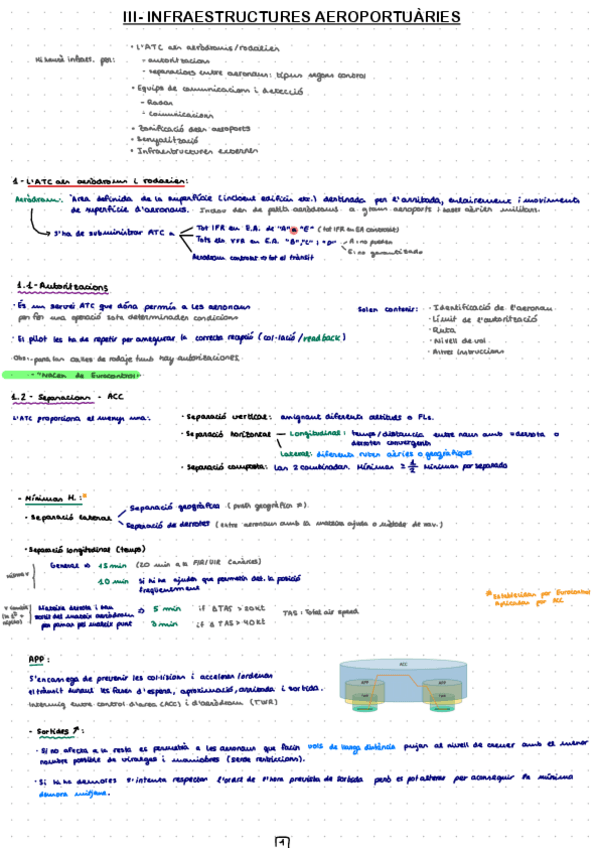 III- INFRAESTRUCTURES AEROPORTUÀRIES
· L'ATC als aeròdroms/rodalies
Hi haurà infraes. per:
- autoritzacions
- separacions entre aeronaus: tipus segons control
· Equips de comunicacions i detecció
- Radar
- Comunicacions
· Zonificació dels aeroports
· Senyalització
· Infraestructures externes
1 - L'ATC als aeròdroms i rodalies:
Aeròdrom: "Àrea definida de la superfície (incloent edificis etc.) destinada per l'arribada, enlairament i moviments
de superfície d'aeronaus. Inclou des de petits aeròdroms a grans aeroports i bases aèries militars.
S'ha de subministrar ATC a
Tot IFR en E.A. de "A" a "E" (tot IFR en EA controlat)
Tots els VFR en E.A. "B", "C" i "D"
A: no poden
E: no garantizado
Aeròdrom controlat → tot el trànsit
1.1 - Autoritzacions
· És un servei ATC que dóna permís a les aeronaus
per fer una operació sota determinades condicions
Solen contenir:
· Identificació de l'aeronau
· Límit de l'autorització
· Ruta
· Nivell de vol
· Altres instruccions
· El pilot les ha de repetir per assegurar la correcta recepció (col·lació/readback)
Obs: para las calles de rodaje tmb hay autorizaciones.
"Núcleo de Eurocontrol"
1.2 - Separacions - ACC
L'ATC proporciona al menys una:
· Separació vertical: assignant diferents altituds o FLs.
· Separació horizontal
Longitudinal: temps/distància entre naus amb =derrota o
derrotes convergents
Lateral: diferents rutes aèries o geogràfiques
· Separació composta: las 2 combinadas. Mínimas ≥ 1/2 mínimas por separado
- Mínimas H.:*
· Separació lateral
Separació geogràfica (punts geogràfics ≠).
Separació de derrotes (entre aeronaus amb la mateixa ajuda o mètode de nav.)
· Separació longitudinal (temps)
General ⇒ 15 min (20 min a la FIR/UIR Canàries)
10 min Si hi ha ajudes que permetin det. la posició
freqüentment
Mateixa derrota i han
sortit del mateix aeròdrom
⇒ 5 min if Δ TAS > 20 kt
3 min if Δ TAS > 40 kt
TAS: Total air speed
* Establecidas por Eurocontrol
aplicadas por ACC
APP:
S'encarrega de prevenir les col·lisions i accelerar/ordenar
el trànsit durant les fases d'espera, aproximació, arribada i sortida.
Intermig entre control d'àrea (ACC) i d'aeròdrom (TWR)
ACC
APP
APP
TWR
TWR
- Sortides ↗:
· Si no afecta a la resta es permetrà a les aeronaus que facin vols de llarga distància pujar al nivell de creuer amb el menor
nombre possible de viratges i maniobres (sense restriccions).
· Si hi ha demores s'intenta respectar l'ordre de l'hora prevista de sortida però es pot alterar per aconseguir la mínima
demora mitjana.
1